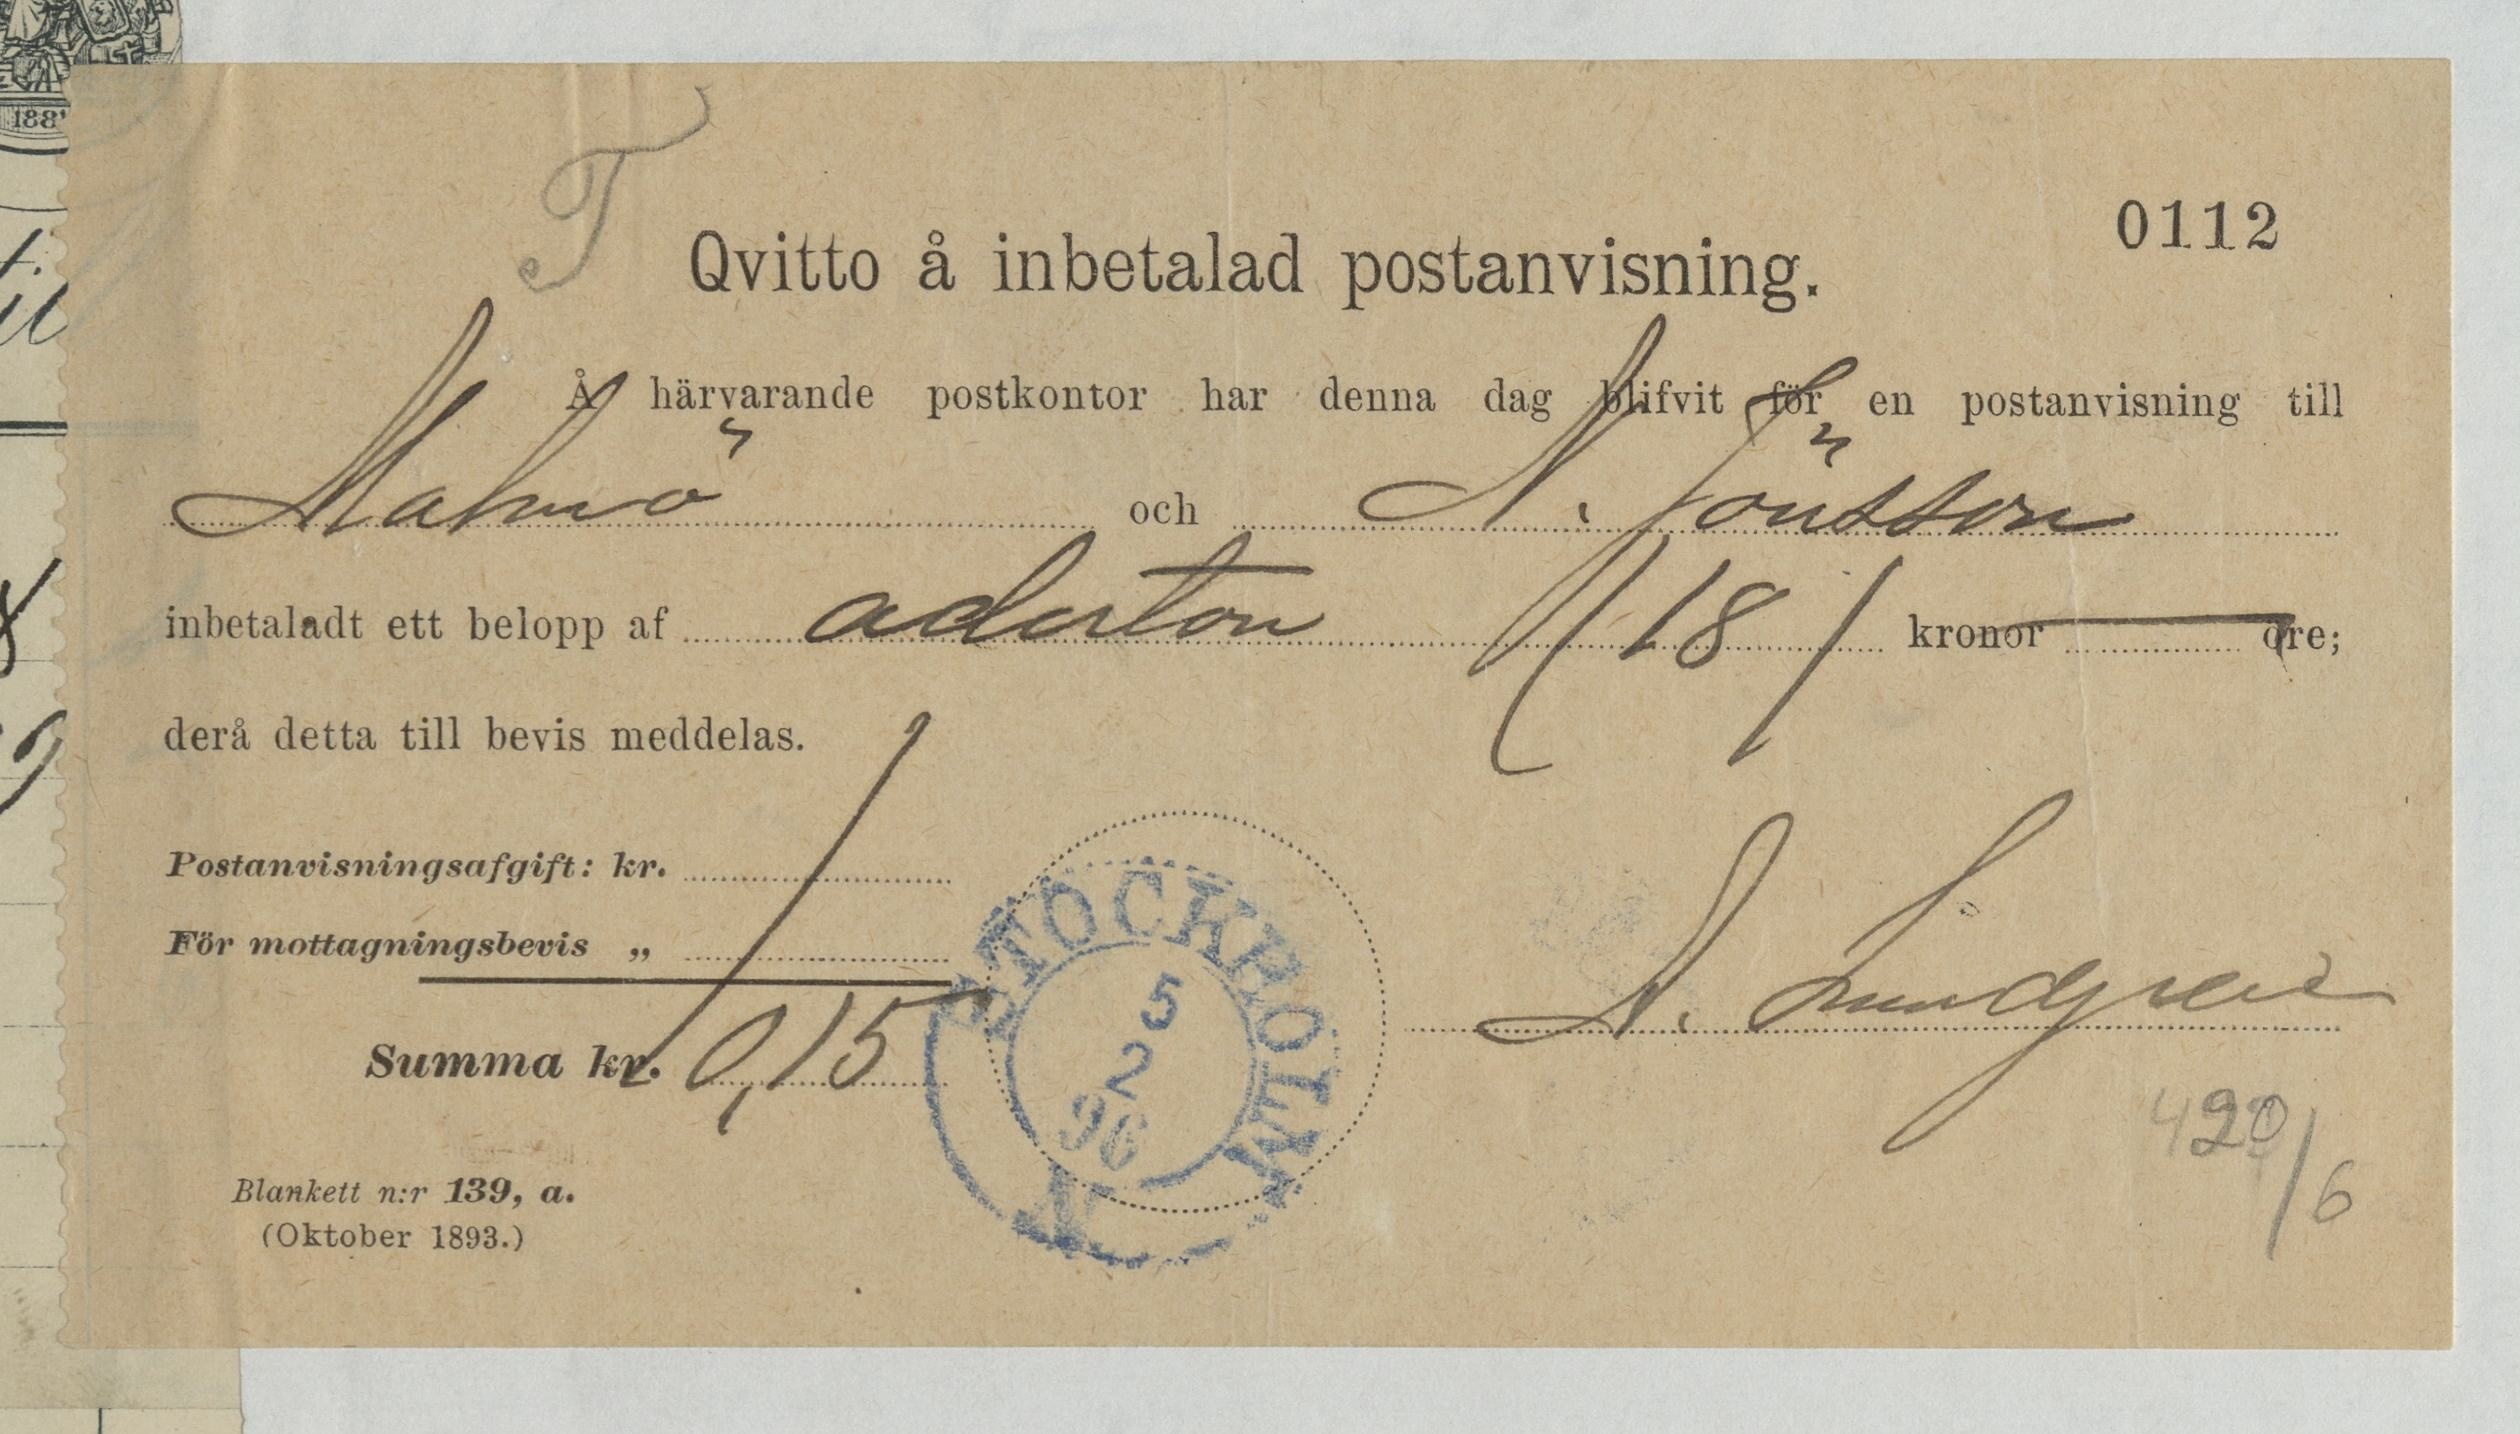 188
T
0112
Qvitto å inbetalad postanvisning.
Å härvarande postkontor har denna dag blifvit för en postanvisning till
Malmö och N. Jönsson
inbetaladt ett belopp af aderton (18) kronor — öre;
derå detta till bevis meddelas.
Postanvisningsafgift: kr.
För mottagningsbevis „
Summa kr. 0,15
STOCKHOLM
5
2
96
N. Lundgren
420/6
Blankett n:r 139, a.
(Oktober 1893.)